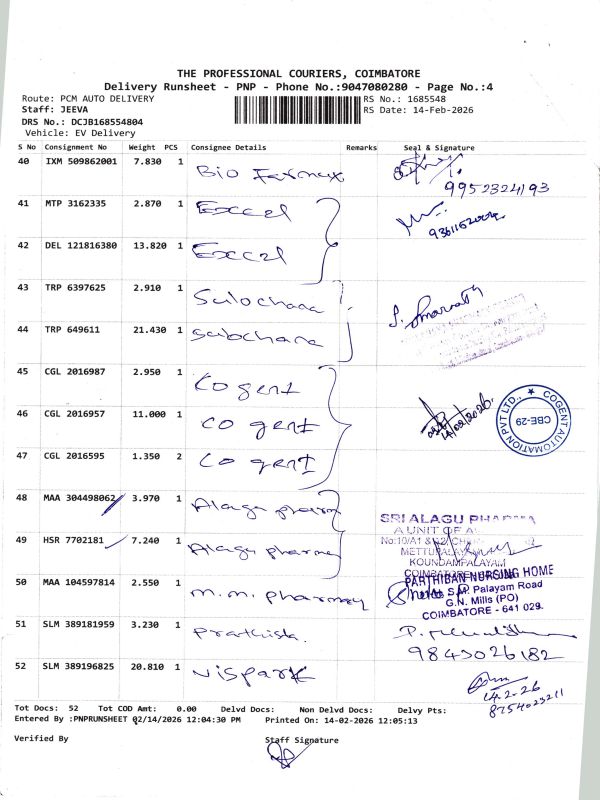 THE PROFESSIONAL COURIERS, COIMBATORE
Delivery Runsheet - PNP - Phone No.:9047080280 - Page No.:4
Route: PCM AUTO DELIVERY
Staff: JEEVA
DRS No.: DCJB168554804
Vehicle: EV Delivery
RS No.: 1685548
RS Date: 14-Feb-2026
S No Consignment No Weight PCS Consignee Details Remarks Seal & Signature
40 IXM 509862001 7.830 1 Bio Farmax
9952324193
41 MTP 3162335 2.870 1 Exccel
42 DEL 121816380 13.820 1 Exccel
43 TRP 6397625 2.910 1 Sulochana
44 TRP 649611 21.430 1 Sulochana
45 CGL 2016987 2.950 1 Cogent
46 CGL 2016957 11.000 1 Cogent
14/02/2026
COGENT AUTOMATION PVT LTD., CBE-29
47 CGL 2016595 1.350 2 Cogent
48 MAA 304498062 3.970 1 Alagu pharm
SRI ALAGU PHARMA
A UNIT OF
49 HSR 7702181 7.240 1 Alagu pharma
KOUNDAMPALAYAM
50 MAA 104597814 2.550 1 m.m. pharmacy
PARTHIBAN NURSING HOME
S.M. Palayam Road
G.N. Mills (PO)
COIMBATORE - 641 029.
51 SLM 389181959 3.230 1 Prathista
9843026182
52 SLM 389196825 20.810 1 Vispark
14.2-26
8754023211
Tot Docs: 52 Tot COD Amt: 0.00 Delvd Docs: Non Delvd Docs: Delvy Pts:
Entered By :PNPRUNSHEET 02/14/2026 12:04:30 PM Printed On: 14-02-2026 12:05:13
Verified By Staff Signature